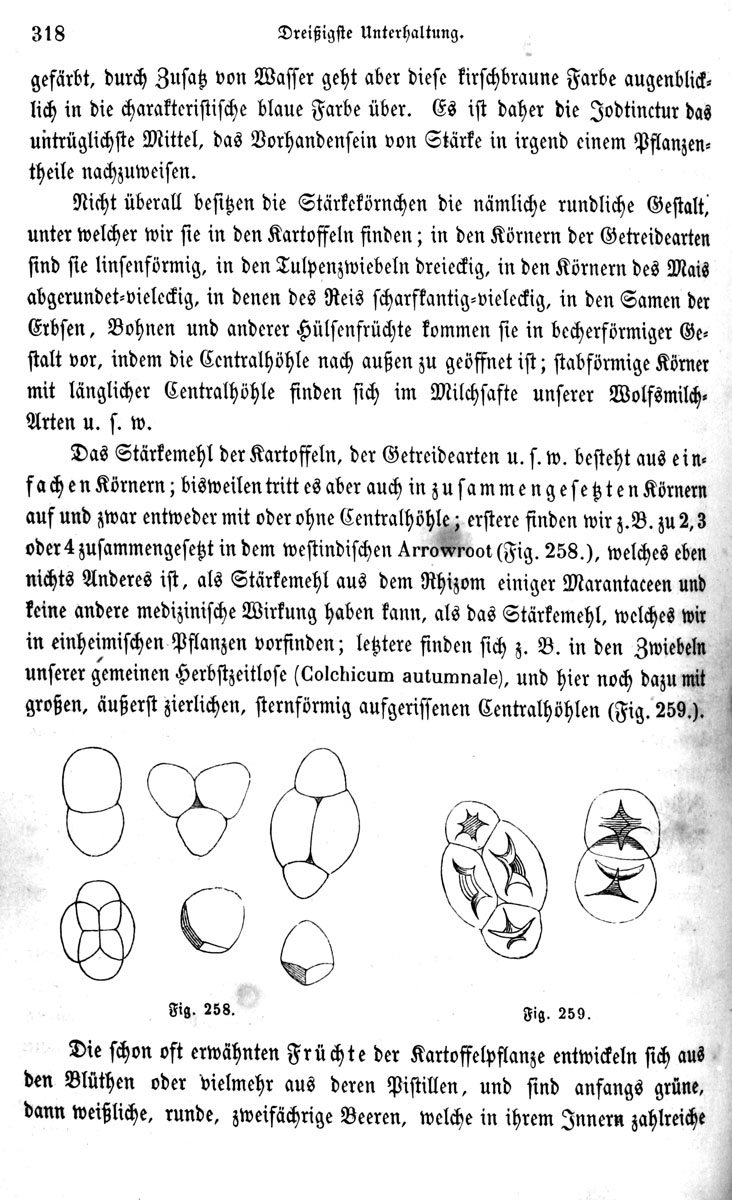 318
Dreißigste Unterhaltung.
gefärbt, durch Zusatz von Wasser geht aber diese kirschbraune Farbe augenblick-
lich in die charakteristische blaue Farbe über. Es ist daher die Jodtinctur das
untrüglichste Mittel, das Vorhandensein von Stärke in irgend einem Pflanzen-
theile nachzuweisen.
Nicht überall besitzen die Stärkekörnchen die nämliche rundliche Gestalt,
unter welcher wir sie in den Kartoffeln finden; in den Körnern der Getreidearten
sind sie linsenförmig, in den Tulpenzwiebeln dreieckig, in den Körnern des Mais
abgerundet-vieleckig, in denen des Reis scharfkantig-vieleckig, in den Samen der
Erbsen, Bohnen und anderer Hülsenfrüchte kommen sie in becherförmiger Ge-
stalt vor, indem die Centralhöhle nach außen zu geöffnet ist; stabförmige Körner
mit länglicher Centralhöhle finden sich im Milchsafte unserer Wolfsmilch-
Arten u. s. w.
Das Stärkemehl der Kartoffeln, der Getreidearten u. s. w. besteht aus ein-
fachen Körnern; bisweilen tritt es aber auch in zusammengesetzten Körnern
auf und zwar entweder mit oder ohne Centralhöhle; erstere finden wir z. B. zu 2, 3
oder 4 zusammengesetzt in dem westindischen Arrowroot (Fig. 258.), welches eben
nichts Anderes ist, als Stärkemehl aus dem Rhizom einiger Marantaceen und
keine andere medizinische Wirkung haben kann, als das Stärkemehl, welches wir
in einheimischen Pflanzen vorfinden; letztere finden sich z. B. in den Zwiebeln
unserer gemeinen Herbstzeitlose (Colchicum autumnale), und hier noch dazu mit
großen, äußerst zierlichen, sternförmig aufgerissenen Centralhöhlen (Fig. 259.).
Fig. 258.
Fig. 259.
Die schon oft erwähnten Früchte der Kartoffelpflanze entwickeln sich aus
den Blüthen oder vielmehr aus deren Pistillen, und sind anfangs grüne,
dann weißliche, runde, zweifächrige Beeren, welche in ihrem Innern zahlreiche